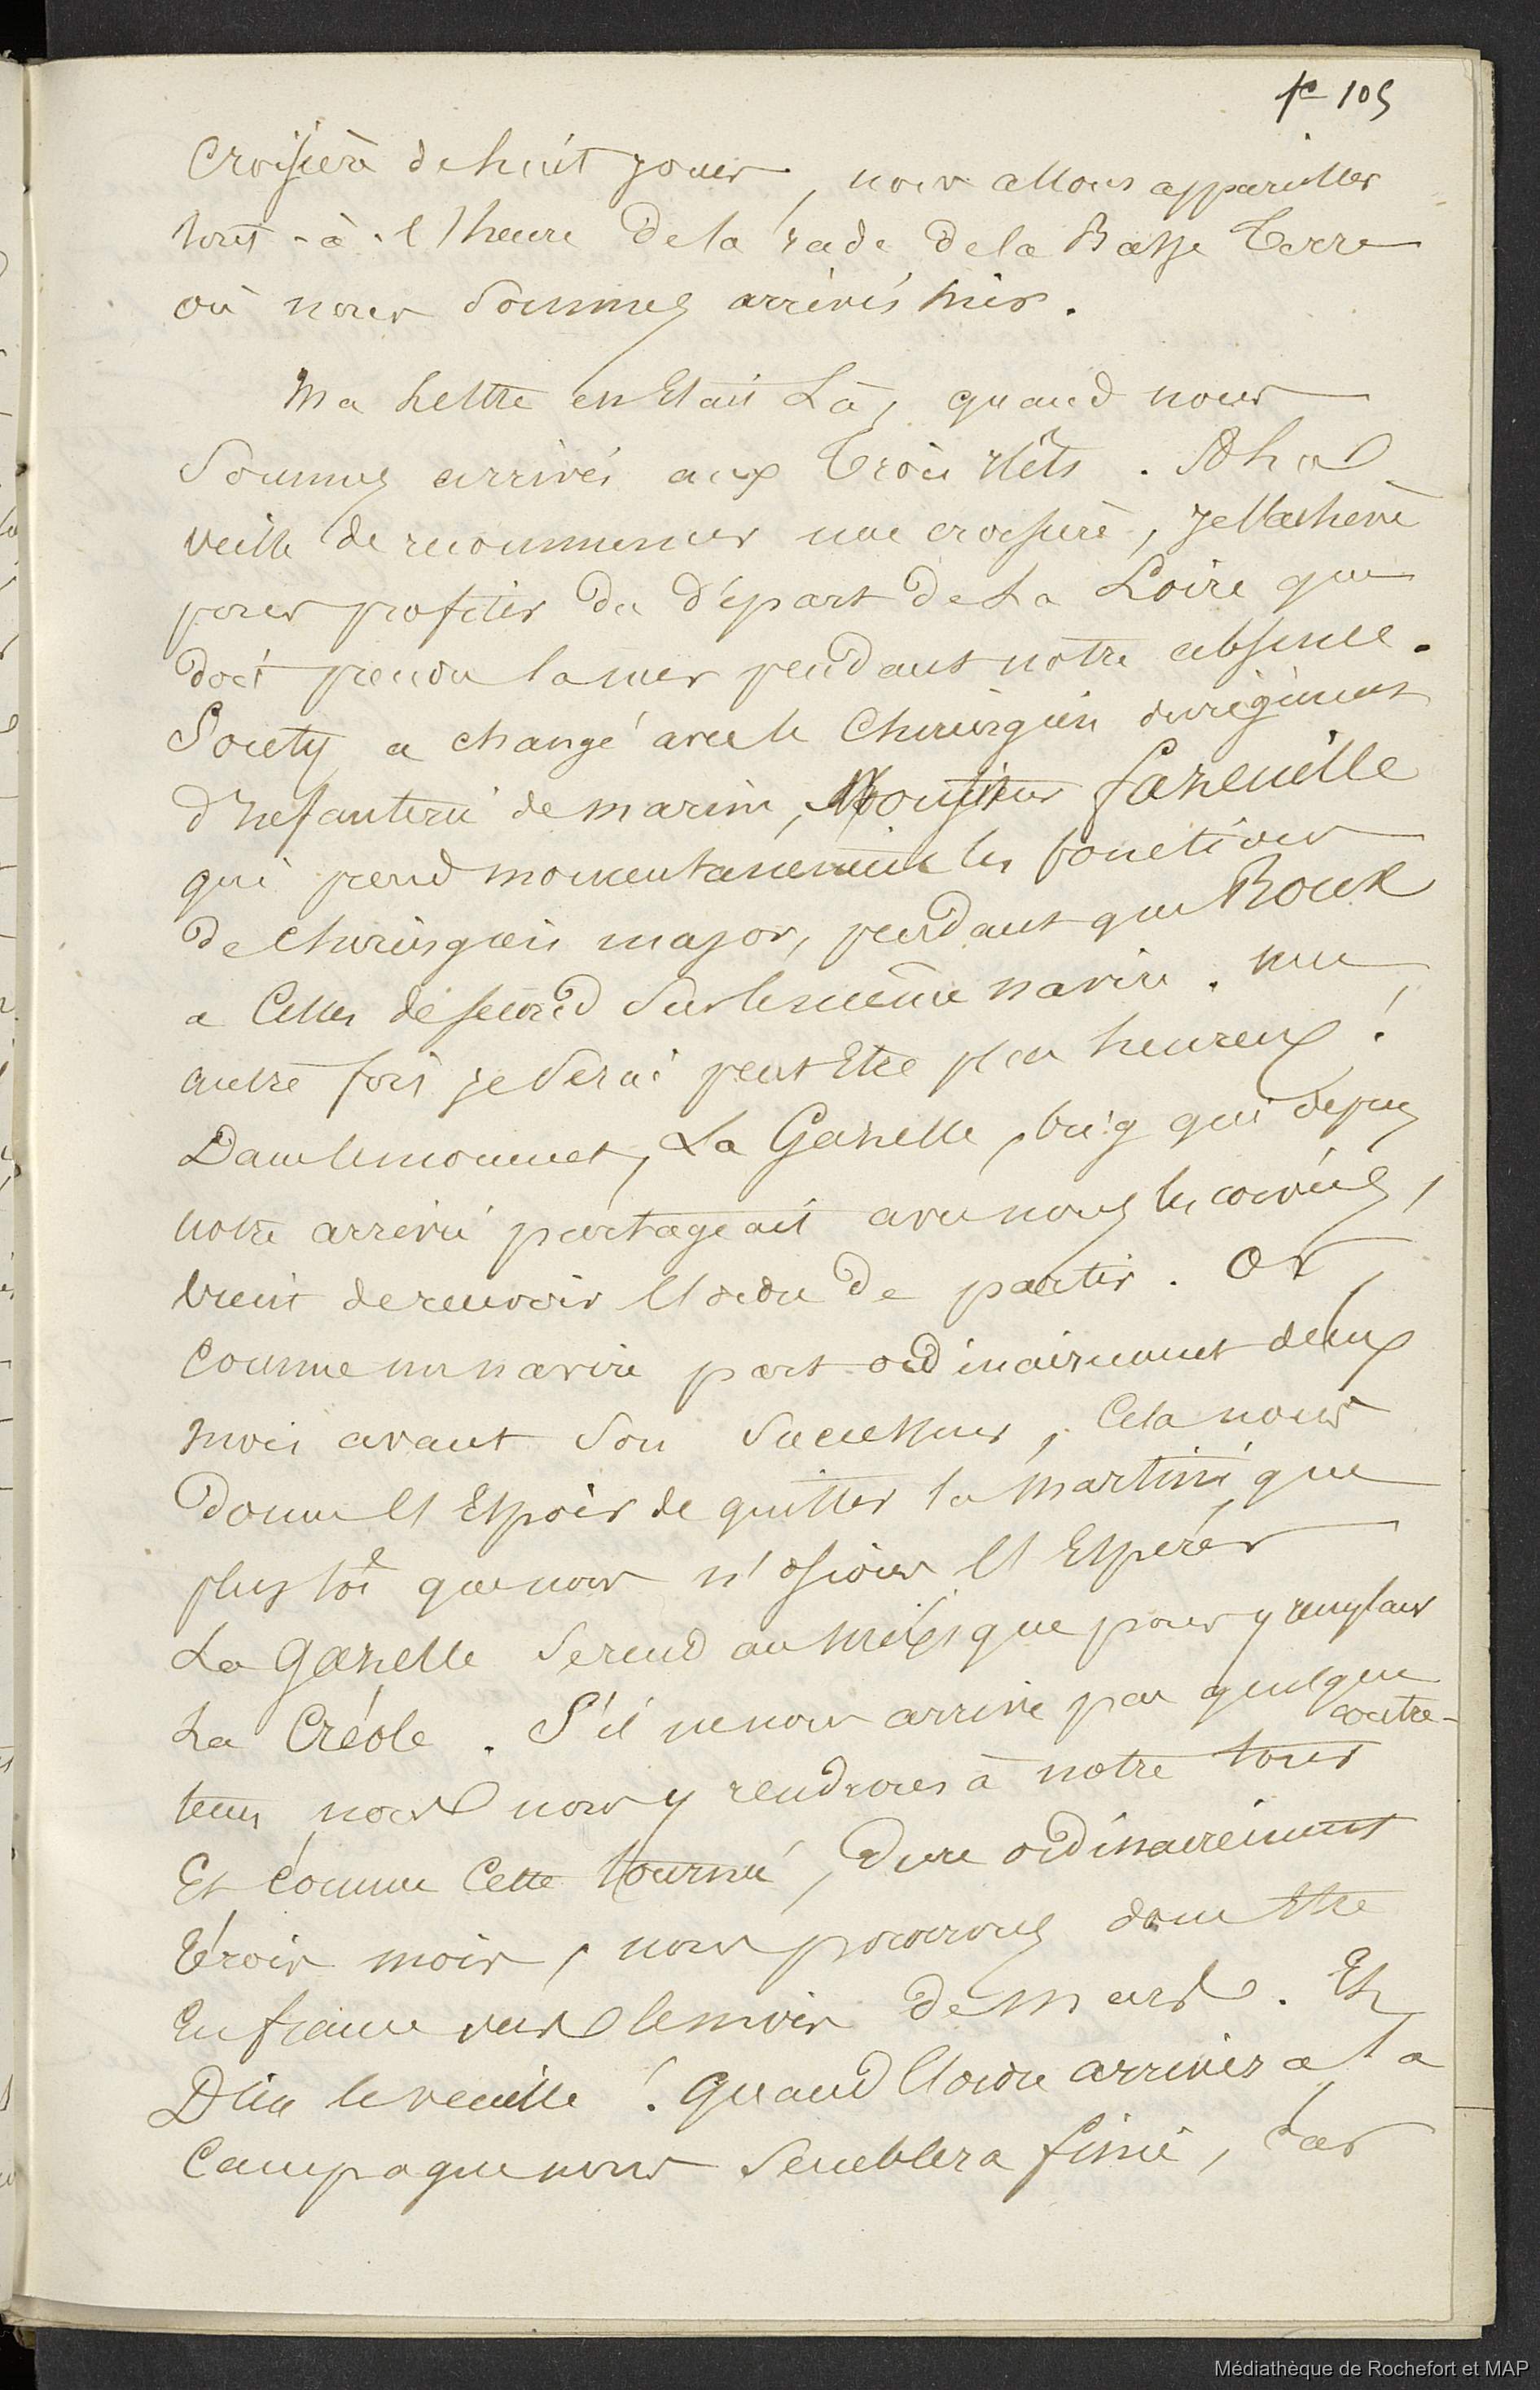 pe 105
Croisière de huit jours, nous allons appareiller
tout-à-l'heure de la rade de la Basse Terre
où nous sommes arrivés hier.
Ma Lettre en Etait Là, quand nous
sommes arrivés aux Trois Ilêts. A la
veille de recommencer une croisière, je l'achève
pour profiter du départ de La Loire qui
doit prendre la mer pendant notre absence.
a changé avec le Chirurgien du régiment
d'Infanterie de marine, Monsieur
qui prend momentanément les fonctions
de Chirurgien major, pendant que Roux
a Celles de second sur le même navire. Une
autre fois je serai peut Etre plus heureux !
Dans le moment, La Gazelle, brig qui depuis
notre arrivée partageait avec nous les corvées,
vient de recevoir l'ordre de partir. Or
comme un navire part ordinairement deux
mois avant son successeur, Cela nous
donne l'Espoir de quitter la Martinique
plus tôt que nous n'osions l'Espérer
La Gazelle se rend au Mexique pour y remplacer
La Créole. S'il ne nous arrive pas quelque
contre-
tems nous nous y rendrons à notre tour
Et comme Cette tournée, dure ordinairement
trois mois, nous pourrons donc être
en france vers le mois de Mars. Et
Dieu le veuille ! quand l'ordre arrivera la
Campagne nous semblera finie, car
Médiathèque de Rochefort et MAP